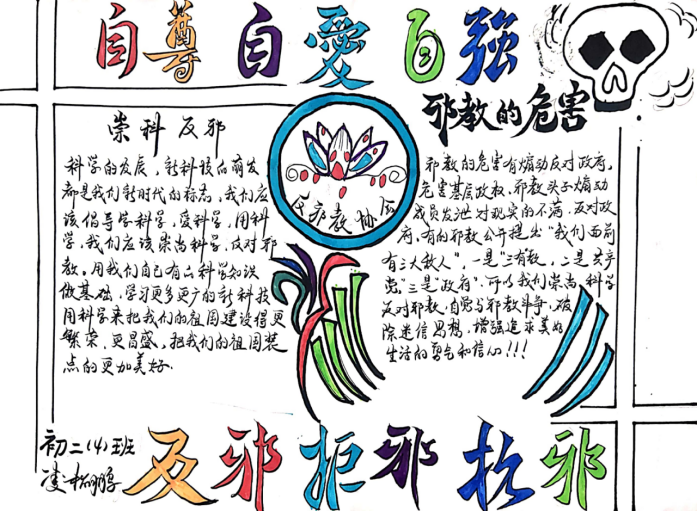 自尊自愛自強
崇科反邪
科学的发展,新科技的萌发
都是我们新时代的标志,我们应
该倡导学科学,爱科学,用科
学,我们应该崇尚科学,反对邪
教。用我们自己有的科学知识
做基础,学习更多更广的新科技
用科学来把我们的祖国建设得更
繁荣,更昌盛,把我们的祖国装
点的更加美好.
反邪教协会
邪教的危害
邪教的危害有煽动反对政府,
危害基层政权,邪教头子煽动
成员发泄对现实的不满.反对政
府,有的邪教公开提出“我们面前
有三大敌人”,一是“三有教,二是共产
党”三是“政府”.所以我们崇尚科学
反对邪教.自觉与邪教斗争,破
除迷信思想,增强追求美好
生活的勇气和信心!!!
初二(4)班
反邪拒邪抗邪